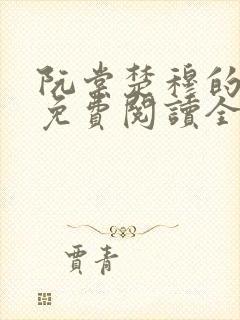 阮棠楚穆的
免費閱讀全
賈青